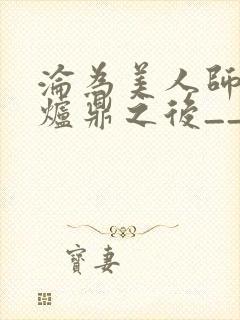 淪為美人師
爐鼎之後__
寶妻